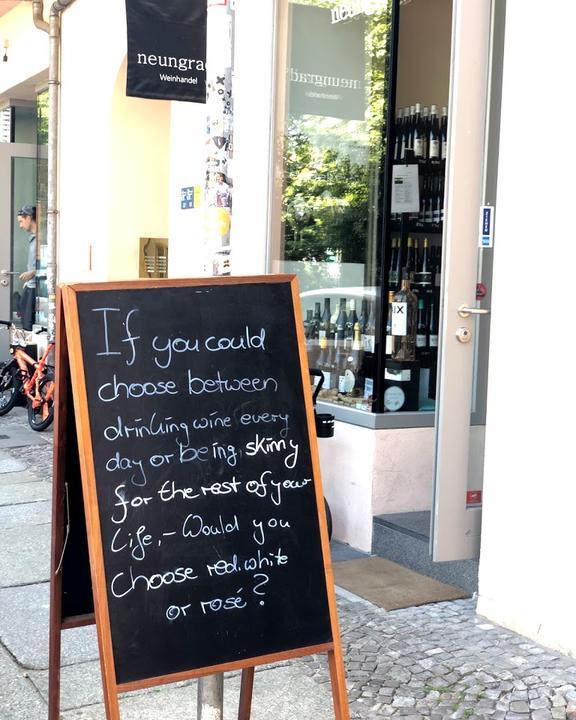 neungrad
Weinhandel
neungrad
Weinhandel
If you could
choose between
drinking wine every
day or being skinny
for the rest of your
life,- Would you
choose red. white
or rosé?
IX